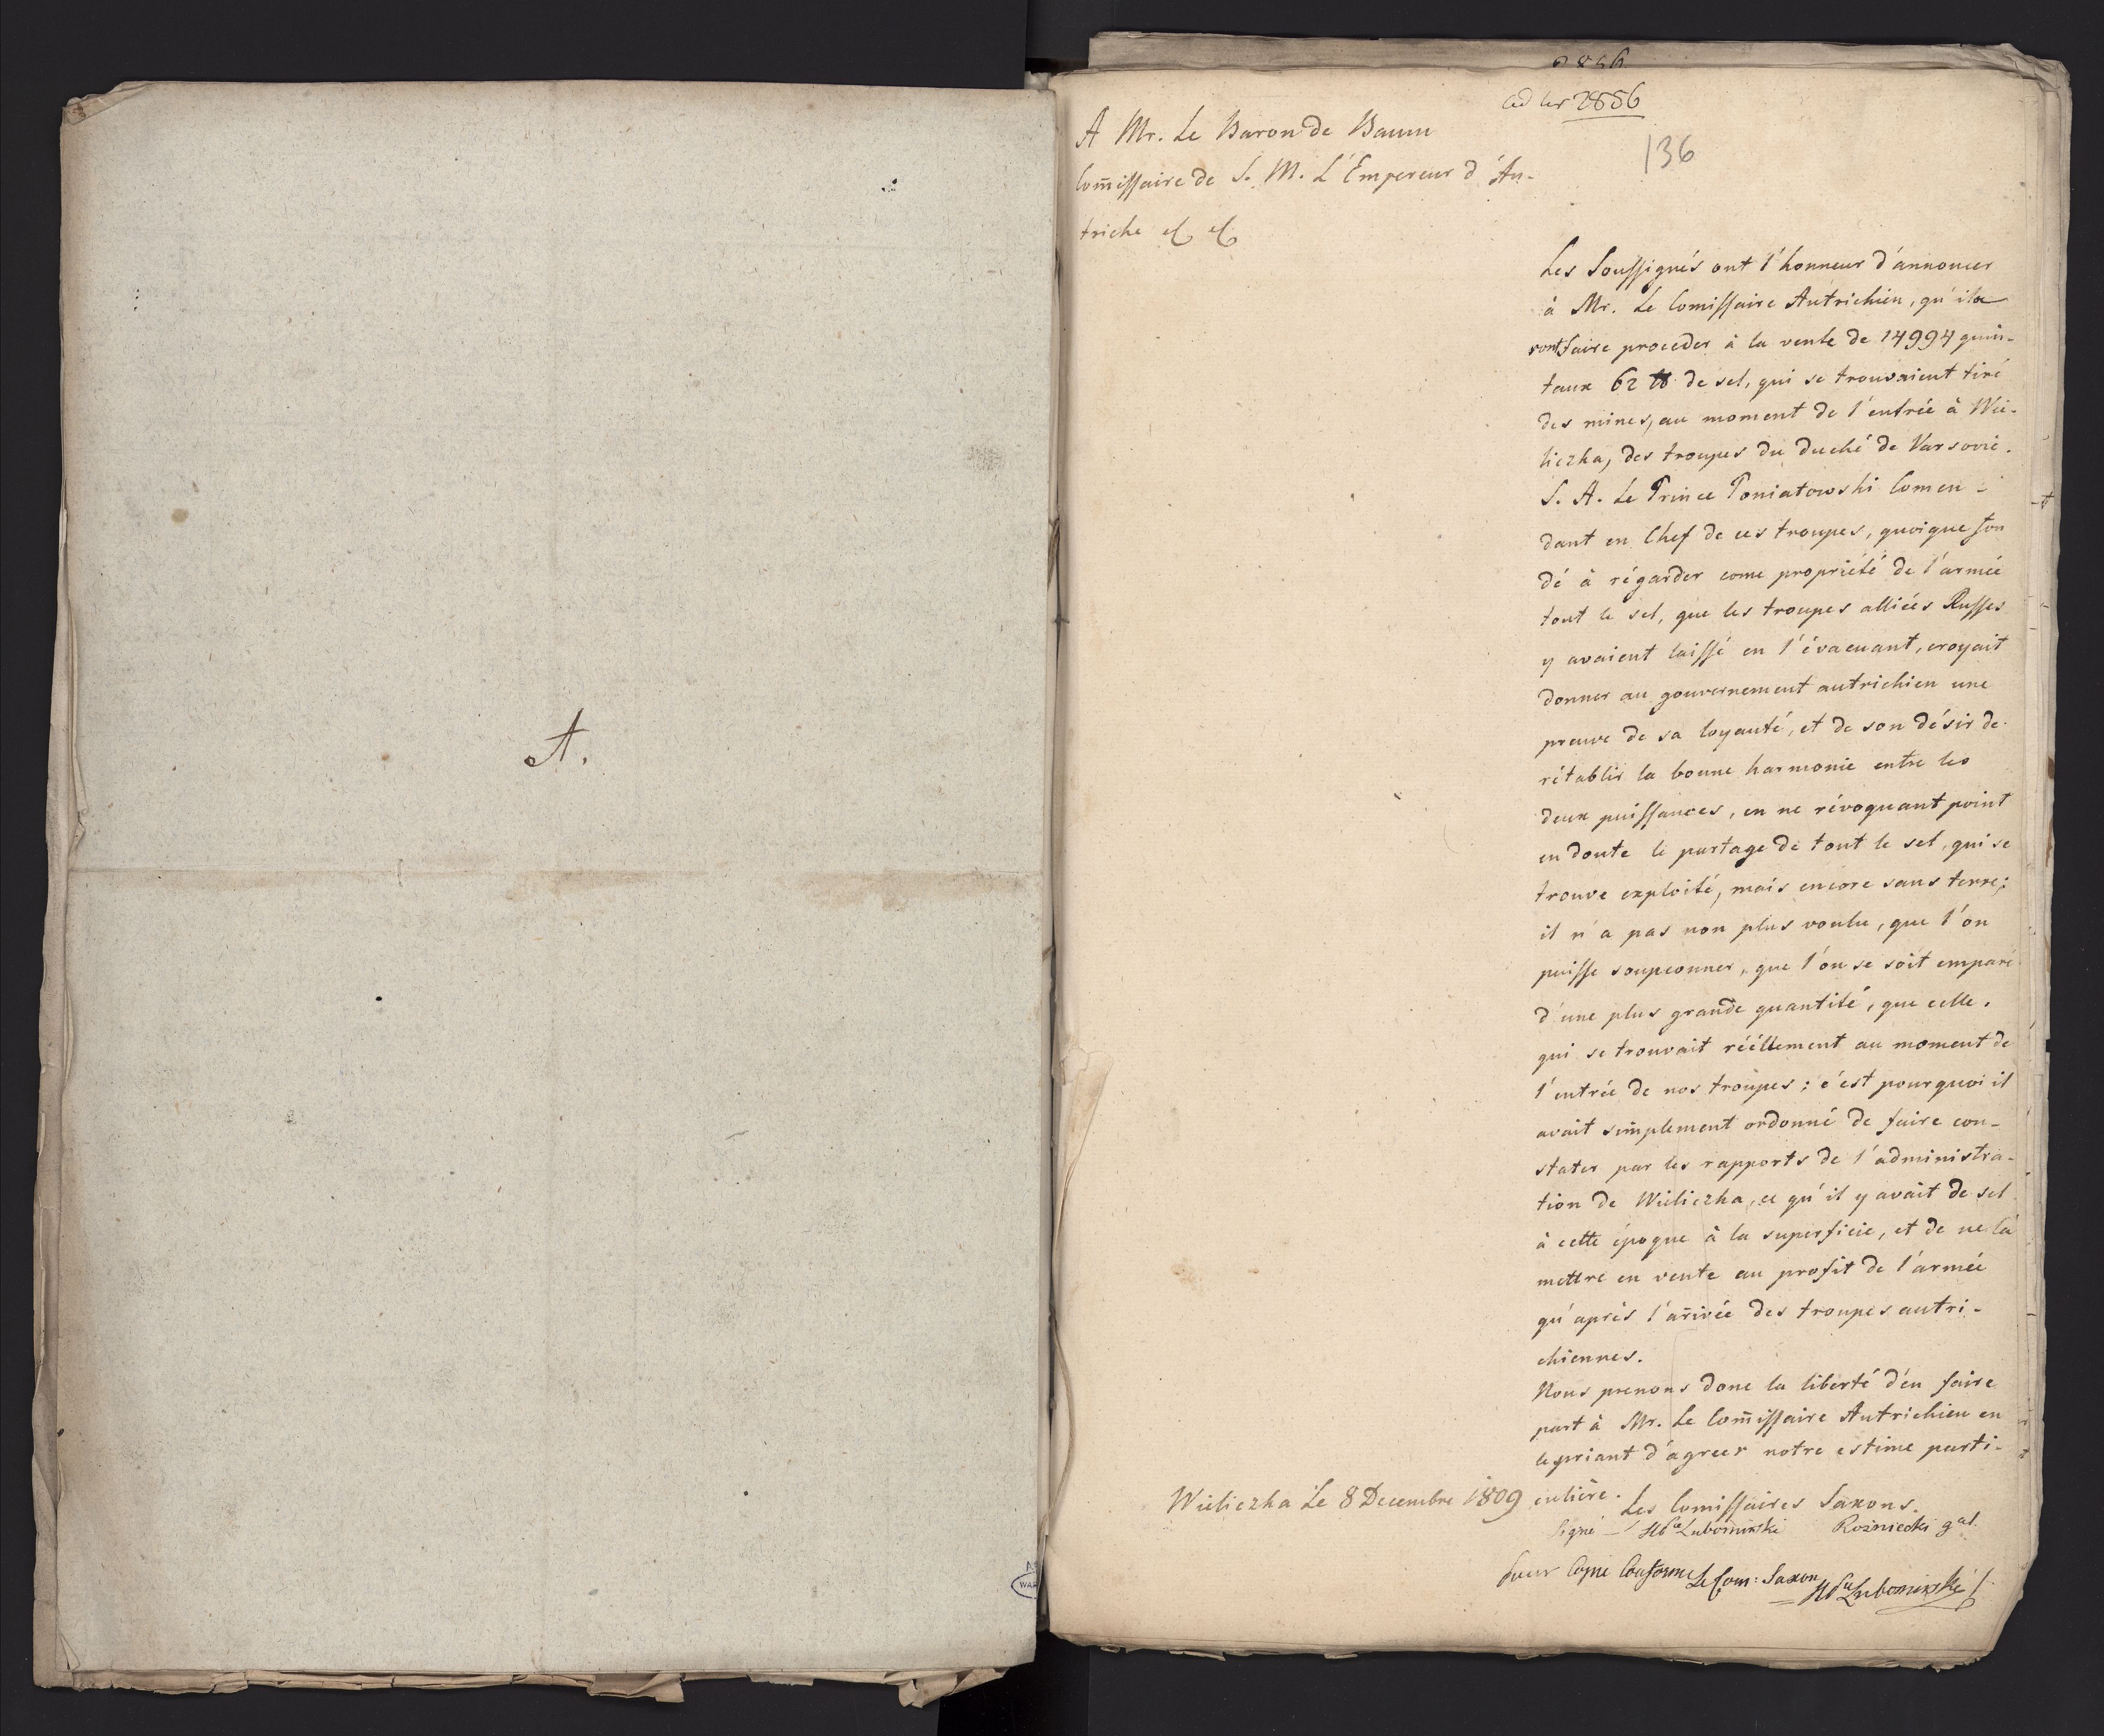 A.
2856
ad nr 2856
136
A Mr. Le Baron de Baum
Com̄issaire de S. M. L'Empereur d'Au-
triche &c &c
Les Soussignés ont l'honneur d'annoncer
à Mr. Le Comissaire Autrichien, qu'ils
vont faire proceder à la vente de 14994 quin-
taux 62 ℔ de sel, qui se trouvaient tiré
des mines, au moment de l'entrée à Wie-
liczka, des troupes du duché de Varsovie.
S. A. Le Prince Poniatowski Comen-
dant en Chef de ces troupes, quoique fon
dé à régarder come propriété de l'armée
tout le sel, que les troupes alliées Russes
y avaient laissé en l'évacuant, croyait
donner au gouvernement autrichien une
preuve de sa loyauté, et de son désir de
rétablir la bonne harmonie entre les
deux puissances, en ne révoquant point
en doute le partage de tout le sel, qui se
trouve exploité, mais encore sous terre;
il n'a pas non plus voulu, que l'on
puisse soupconner, que l'on se soit emparé
d'une plus grande quantité, que celle.
qui se trouvait réellement au moment de
l'entrée de nos troupes; c'est pourquoi il
avait simplement ordonné de faire con-
stater par les rapports de l'administra-
tion de Wieliczka, ce qu'il y avait de sel
à cette époque à la superficie, et de ne la
mettre en vente au profit de l'armée
qu'après l'ar̄ivée des troupes autri-
chiennes.
Nous prenons donc la liberté d'en faire
part à Mr. Le Com̄issaire Autrichien en
le priant d'agreer notre estime parti-
culière.
Wieliczka Le 8 Decembre 1809
Les Comissaires Saxons.
Signé - Hb ce Lubomirski Rożniecki gal.
Pour Copie Conforme Le Com: Saxon
Hb ce Lubomirski
WAR